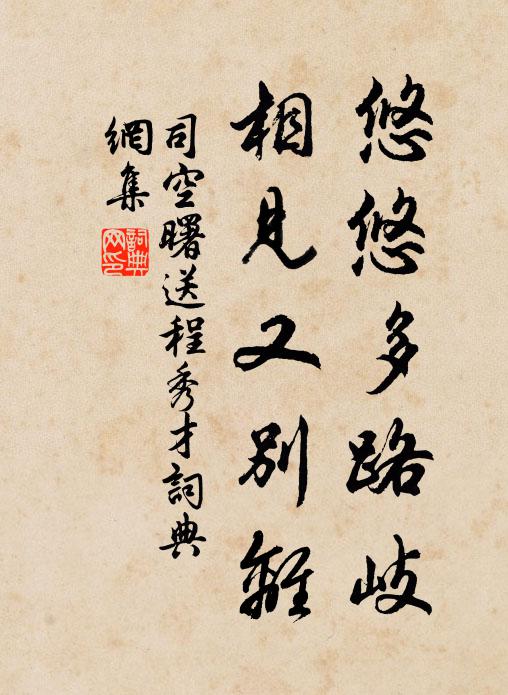 悠悠多路歧
相見又別離
司空曙送程秀才詞典
網集
詞典
网印